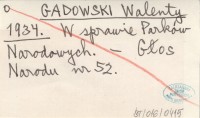 GADOWSKI Walenty
1934. W sprawie Parków
Narodowych. – Głos
Narodu nr. 52.